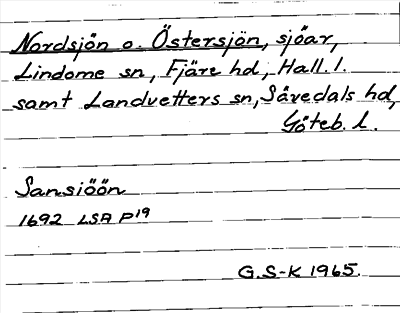 Nordsjön o. Östersjön, sjöar,
Lindome sn, Fjäre hd, Hall. l.
samt Landvetters sn, Sävedals hd,
Göteb. l.
Sansiöön
1692 LSA P19
G.S-K 1965.